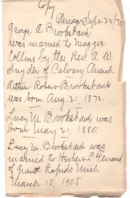 Copy
Chicago Sept 22/70
George A Brooksbank
was married to Maggie
Collins by the Rev. A W.
Snyder of Calvary Church
Arthur Robert Brooksbank
was born Aug. 21, 1872.
Lucy M Brooksbank was
born May 21, 1880.
Lucy M. Brooksbank was
married to Herbert L.
of Grand Rapids Mich
March 15, 1905